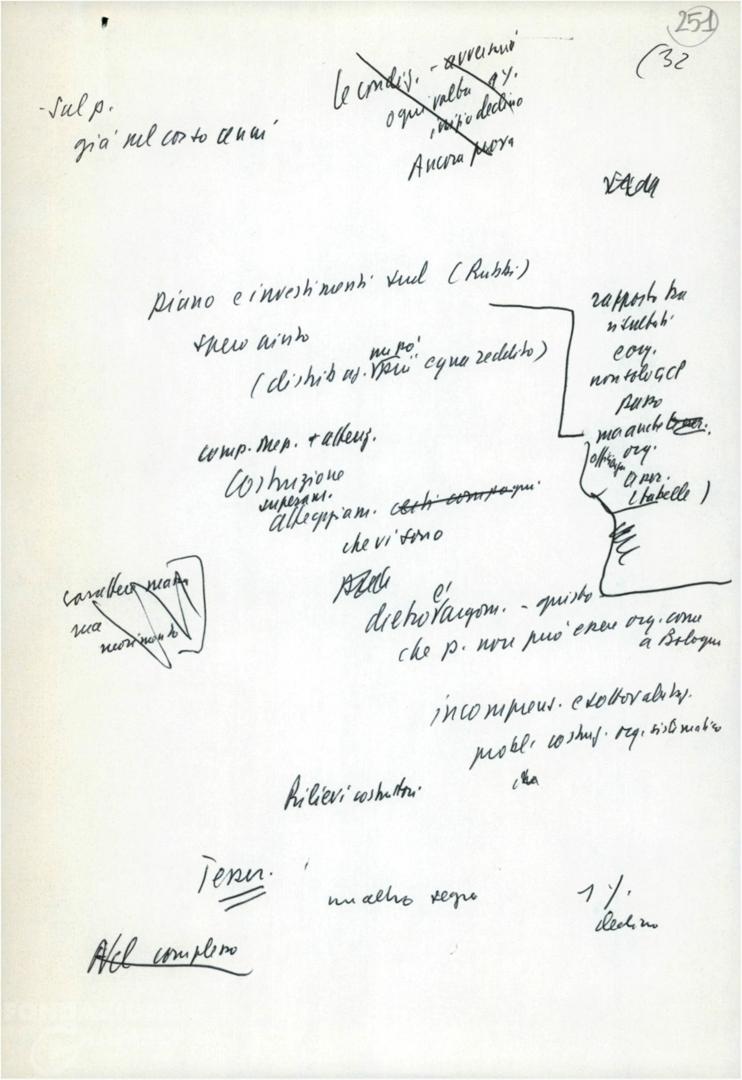 251
(32
- Sul p.
già nel corso anni
Le condiz. - avverini
ogni valba 1%.
inizio declino
Ancora prova
piano e investimenti sud (Rubbi)
spero aiuto
un pò
(distribuz. più equa reddito)
rapporto tra
risultati
e org.
non solo gel
passo
ma anche
org.
(tabelle)
comp. Mep. + attenz.
Costruzione
superam.
atteggiam. certi compagni.
che vi sono
carattere massa
ma
movimento
è
dietro l'argom. - questo
che p. non può essere org. come
a Bologna
incomprens. e sottovalutaz.
probl. costruz. org. sistematico
Rilievi costruttori.
Tesser.
un altro segno
1%.
declino
Nel complesso